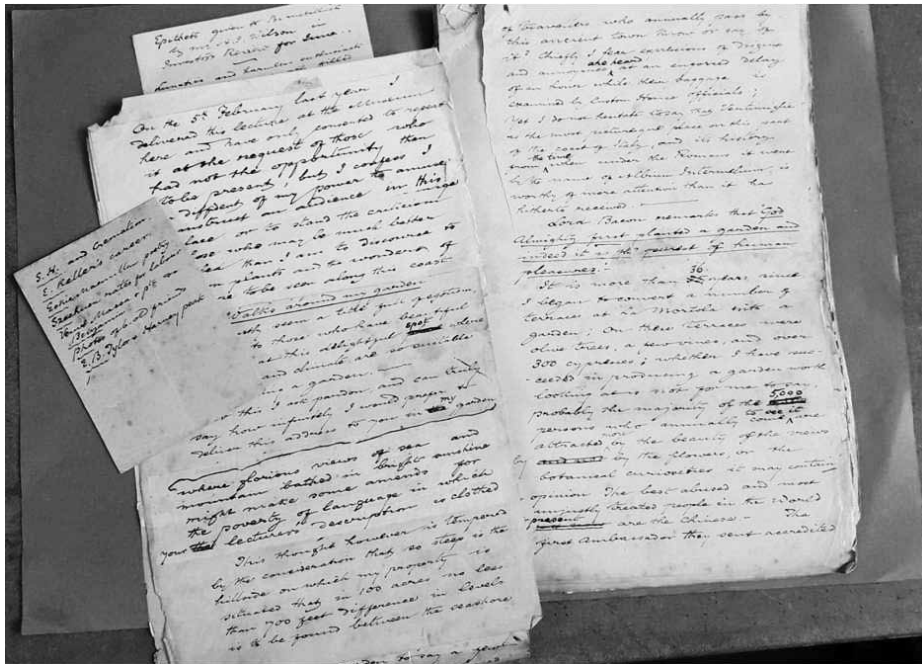 Epithets given to
by Mr. A. J. Wilson in
Investors Review for June
lunatics and harmless enthusiasts
On the 5th February last year I
delivered this lecture at the Museum
here and have only consented to repeat
it at the request of those who
had not the opportunity then
to be present; but I confess I
diffident of my power to amuse
instruct an audience in this
or to stand the criticism
who may be much better
than I am to discourse to
plants and the wonders of
to be seen along this coast
Talks around my garden
to those who have beautiful
at this delightful spot whose
and climate are so suitable
a garden.
this I ask pardon and can truly
say how infinitely I would prefer to
deliver this address to you in my garden
where glorious views of sea and
mountain bathed in bright sunshine
might make some amends for
the poverty of language in which
your lecturers description is clothed
This thought however is tempered
by the consideration that so steep is the
hillside on which my property is
situated that in 100 acres no less
than 700 feet difference in levels
is to be found between the seashore
to say a few
E. Keller's career
poetry
notes for labour
Benjamin's pig
Photos of old friend
E. B. Tylor's Harvey
of travellers who annually pass by
this ancient town know or say of
it? Chiefly I fear exclusions of disgust
and annoyance are heard at an enforced delay
of an hour while their baggage is
examined by Custom House officials;
Yet I do not hesitate to say that Ventimiglia
is the most picturesque place on this part
of the coast of Italy, and its history
from the time when under the Romans it went
by the name of Albium Intemelium, is
worthy of more attention than it has
hitherto received.
Lord Bacon remarks that "God
Almighty first planted a garden and
indeed it is the purest of human
pleasures."
It is more than 36 years since
I began to convert a number of
terraces at La Mortola into a
garden; On these terraces were
olive trees, a few vines, and over
300 cypresses; whether I have suc-
ceeded in producing a garden worth
looking at is not for me to say
probably the majority of the 5,000
persons who annually come to see it are
attracted by the beauty of the views
by the flowers, or the
botanical curiosities it may contain
opinion The best abused and most
unjustly treated people in the World
present are the Chinese - The
first Ambassador they sent accredited